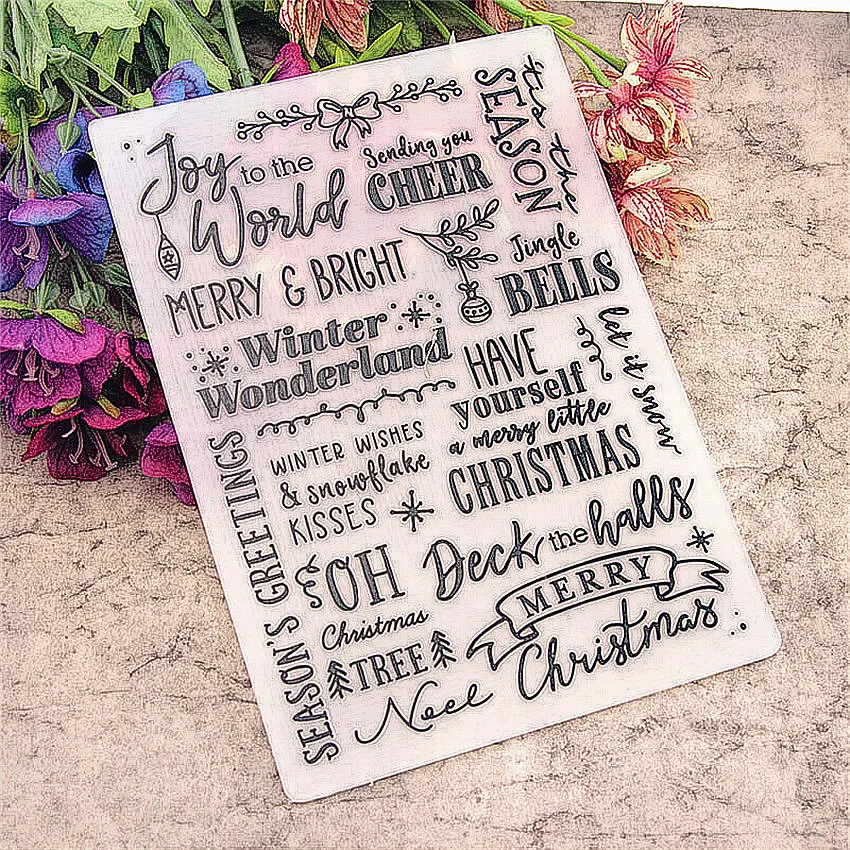 Joy to the
World
Sending you
CHEER
it's the
SEASON
MERRY & BRIGHT
Jingle
BELLS
Winter
Wonderland
HAVE
yourself
a merry little
CHRISTMAS
let it snow
WINTER WISHES
& snowflake
KISSES
SEASON'S GREETINGS
OH
Christmas
TREE
Deck the halls
MERRY
Christmas
Noel